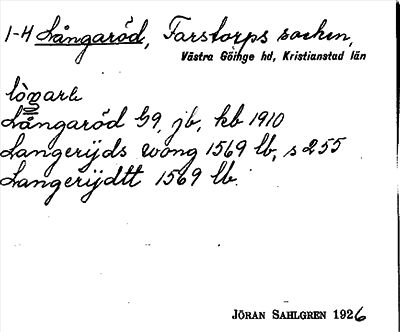 1-4 Långaröd, Farstorps socken,
Västra Göinge hd, Kristianstad län
Långaröd G9, jb, kb 1910
Langerijds wong 1569 lb, s 255
Langerijdtt 1569 lb.
JÖRAN SAHLGREN 1926